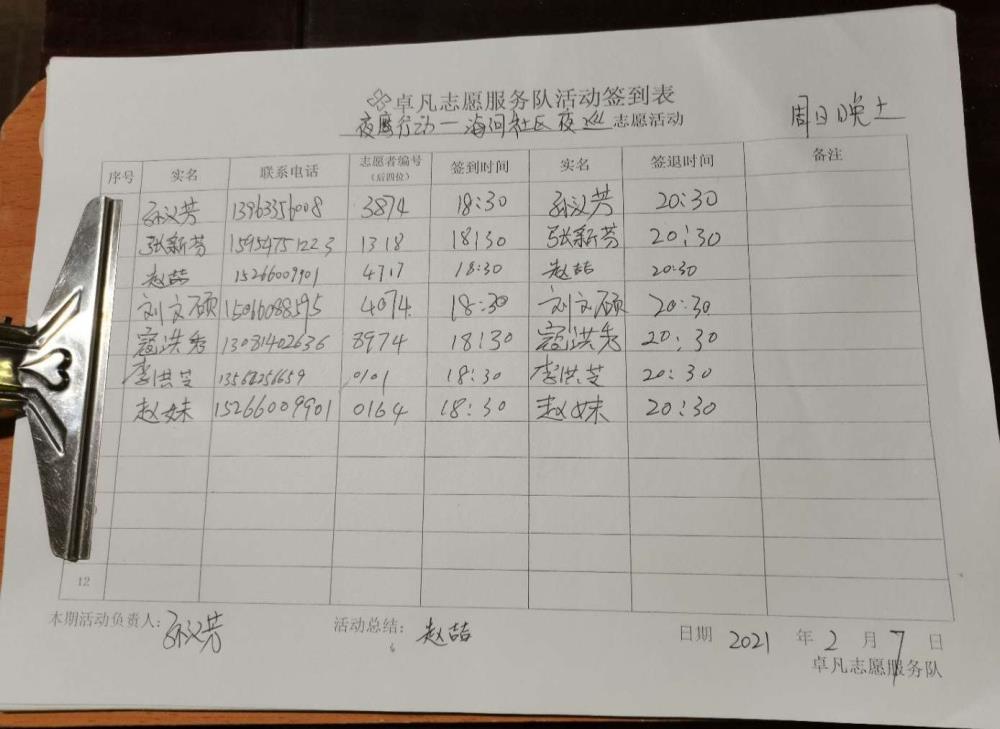 卓凡志愿服务队活动签到表
夜鹰行动一海河社区夜巡志愿活动
周日晚上
序号 实名 联系电话 志愿者编号（后四位） 签到时间 实名 签退时间 备注
孙义芳 13963356008 3874 18:30 孙义芳 20:30
张新芬 15954751223 1318 18:30 张新芬 20:30
赵喆 15266009901 4717 18:30 赵喆 20:30
刘文硕 15016088595 4074 18:30 刘文硕 20:30
寇洪秀 13081402636 8974 18:30 寇洪秀 20:30
李洪芝 13562256659 0101 18:30 李洪芝 20:30
赵妹 15266009901 0164 18:30 赵妹 20:30
12
本期活动负责人：孙义芳 活动总结：赵喆 日期 2021 年 2 月 7 日
卓凡志愿服务队